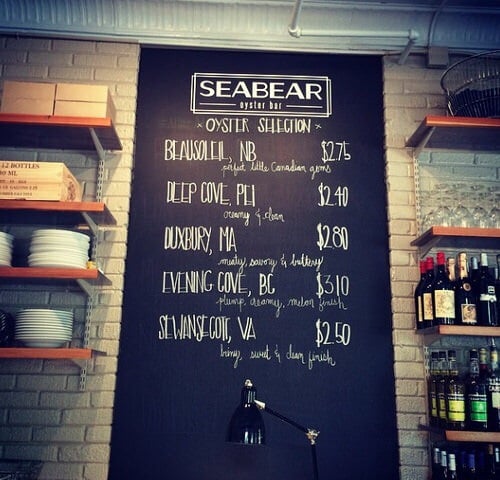 SEABEAR
oyster bar
× OYSTER SELECTION ×
BEAUSOLEIL, NB $2.75
perfect little Canadian gems
DEEP COVE, PEI $2.40
creamy & clean
DUXBURY, MA $2.80
meaty, savory & buttery
EVENING COVE, BC $3.10
plump, creamy, melon finish
SEWANSECOTT, VA $2.50
briny, sweet & clean finish
12 BOTTLES